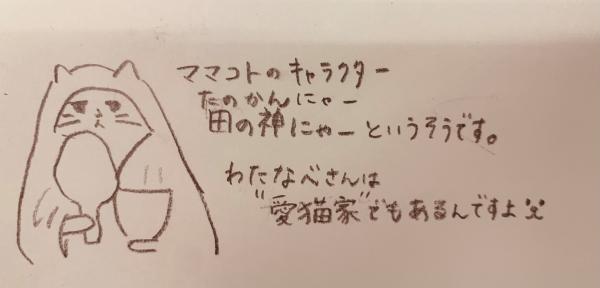 ママコトのキャラクター
たのかんにゃー
田の神にゃーというそうです。
わたなべさんは
"愛猫家"でもあるんですよ